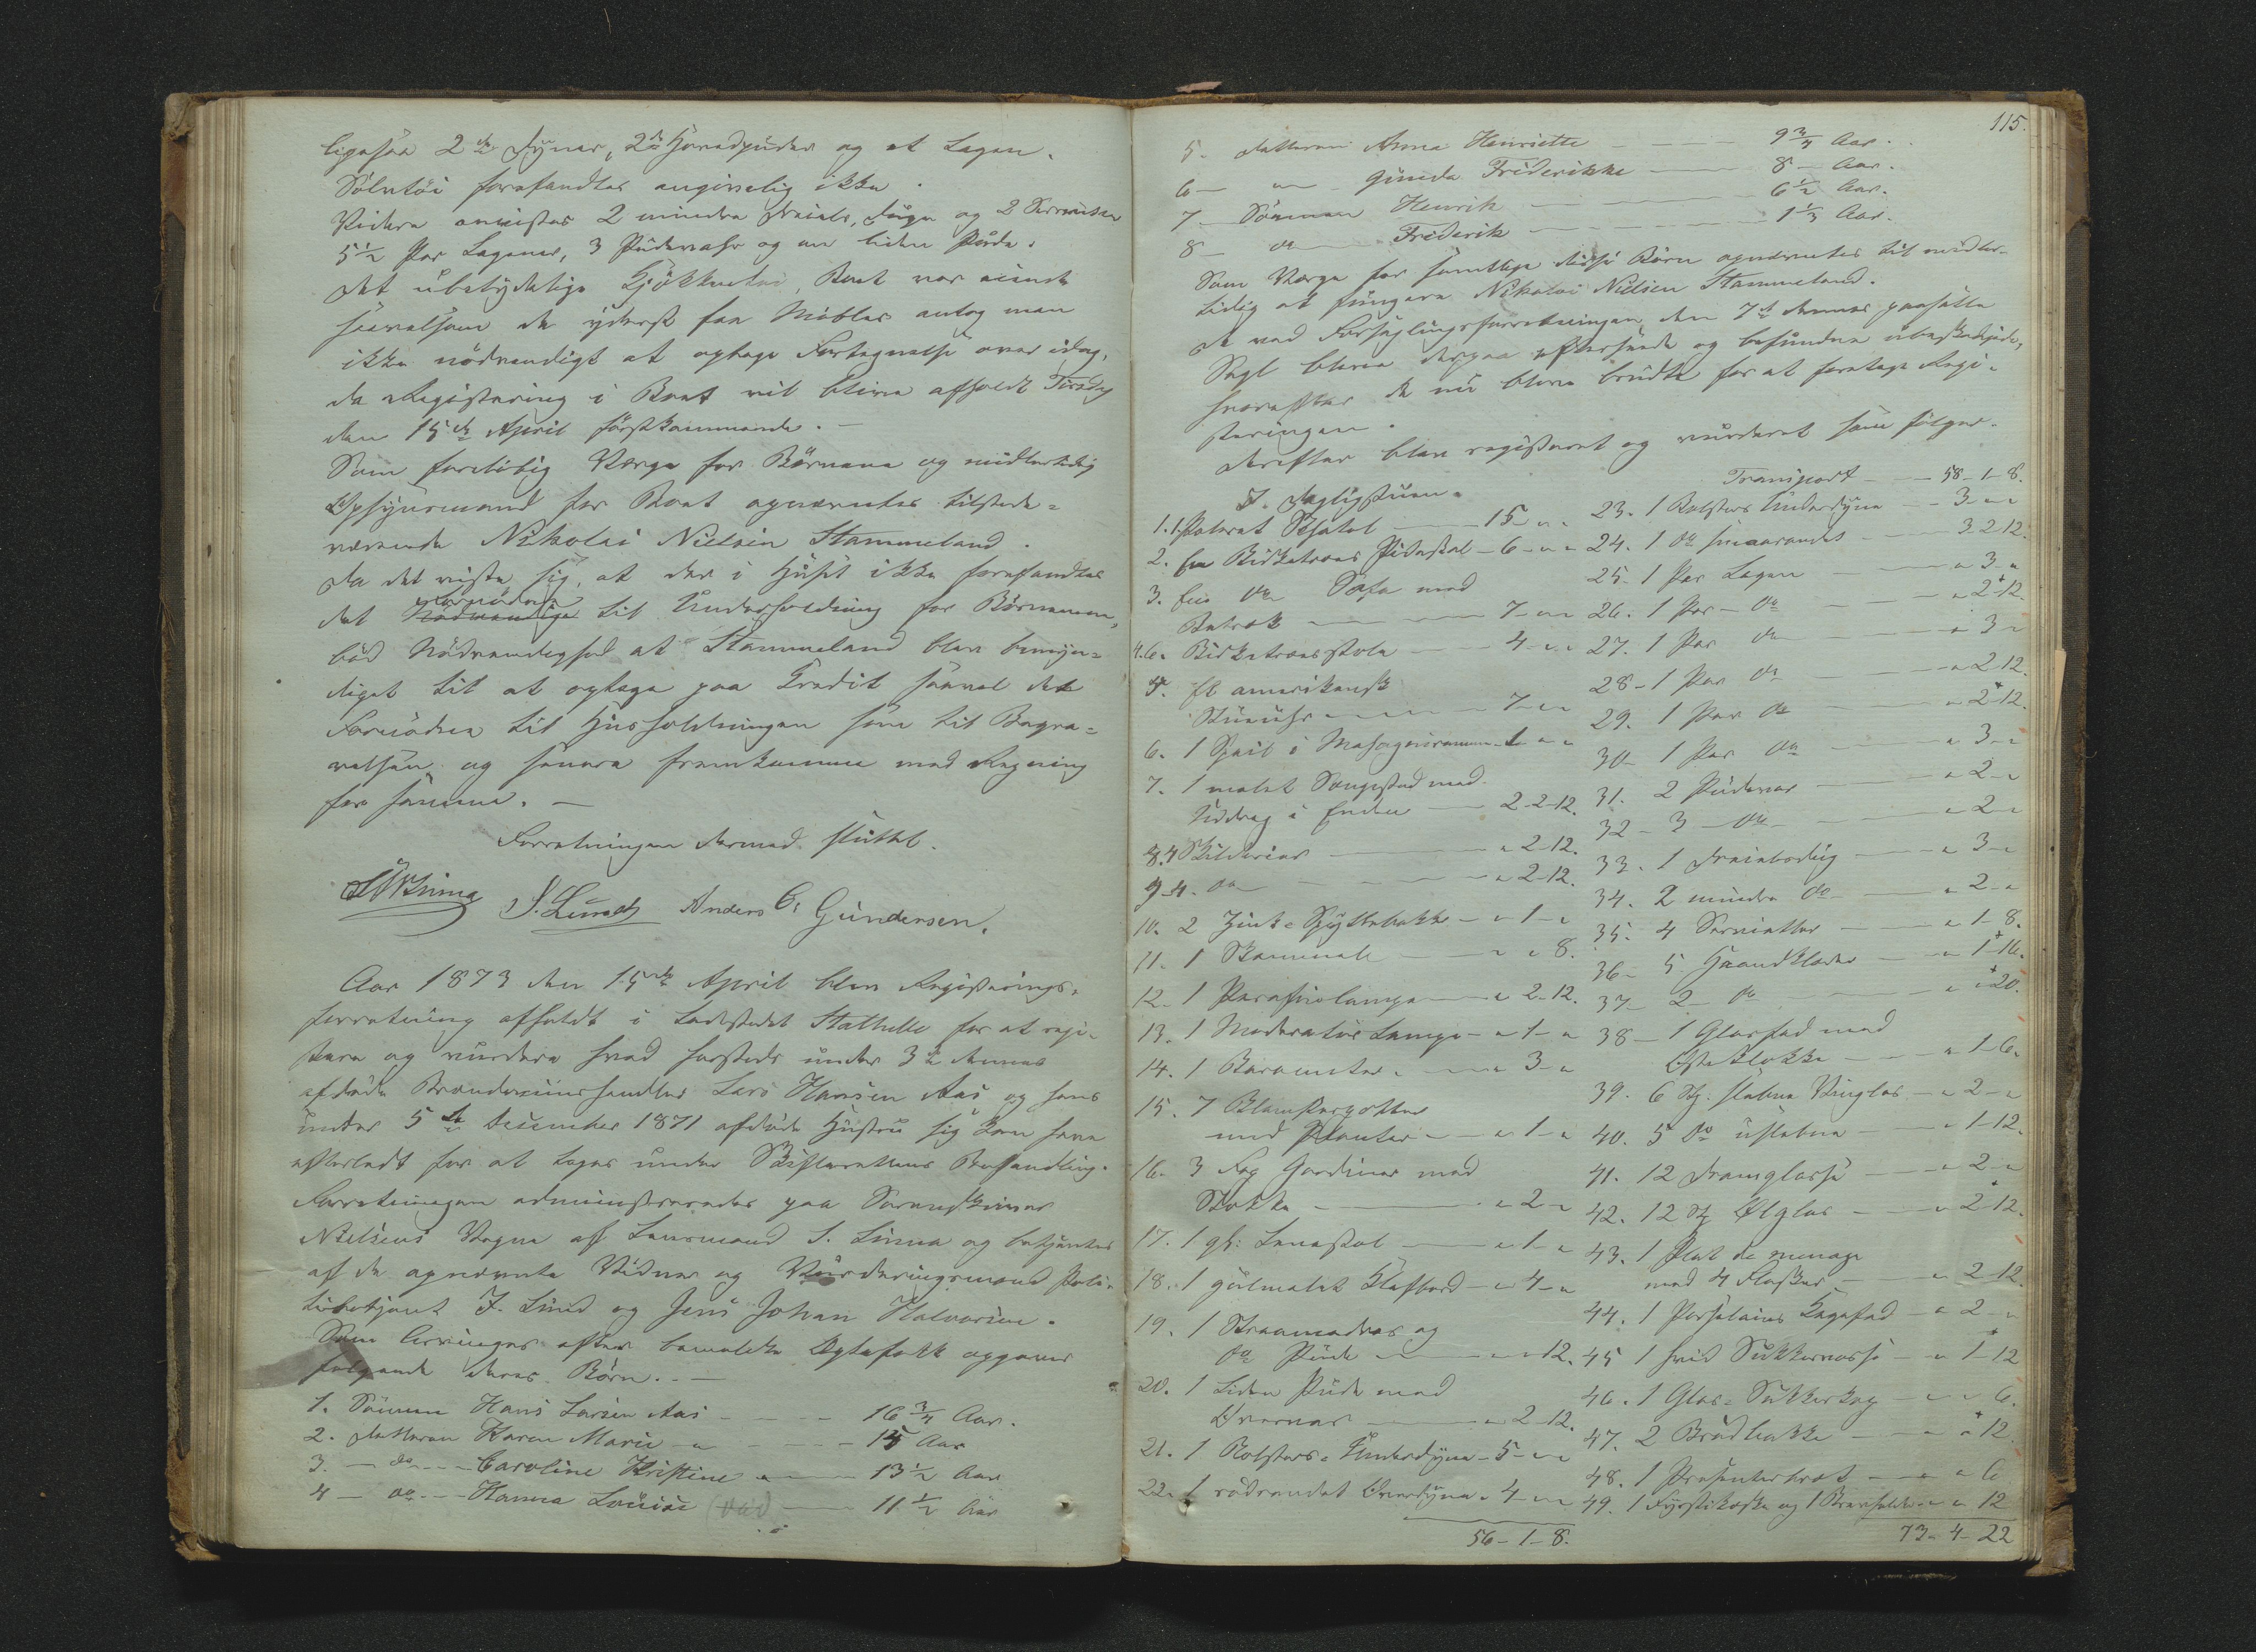 ligesaa 2 do Dyner, 2 do Hovedpuder og et Lagen.
Sölvtöi forefandtes angivelig ikke.
Videre anvistes 2 mindre Dreiels Duge og 2 Servietter
5½ Par Lagener, 3 Pudevahr og en liden Pude.
Det ubetydelige Kjökkentöi, Boet var eiende
saavelsom de yderst faa Möbler antog man
ikke nödvendigt at optage Fortegnelse over idag,
da Registrering i Boet vil blive afholdt Tirsdag
den 15de April förstkommende. —
Som forelöbig Værge for Börnene og midlertidig
Opsynsmand for Boet opnævntes tilstede-
værende Nikolai Nielsen Stammeland.
Da det viste sig, at der i Huset ikke forefandtes
det Nödvendige Fornödne til Underholdning for Börnene,
böd Nödvendighed at Stammeland blev bemyn-
diget til at optage paa Credit saavel det
Fornödne til Husholdningen som til Begra-
velsen og senere fremkomme med Regning
for samme. —
Forretningen dermed sluttet.
J. Lund Anders C. Gundersen.
Aar 1873 den 15de April blev Registrerings-
forretning afholdt i Ladestedet Stathelle for at regi-
strere og vurdere hvad hersteds under 3de dennes
afdöde Brændeviinshandler Lars Hansen Aas og hans
under 5te December 1871 afdöde Hustru sig kan have
efterladt for at tages under Skifterettens Behandling.
Forretningen administreredes paa Sorenskriver
Nielsens Vegne af Lensmand S. Linna og betjentes
af de opnævnte Vidner og Vurderingsmænd Poli-
tibetjent J. Lund og Jens Johan Halvorsen.
Som Arvinger efter bemeldte Ægtefolk opgaves
fölgende deres Börn. —
1. Sönnen Hans Larsen Aas — 16¾ Aar.
2. Datteren Karen Marie — 15 Aar
3. — do — Caroline Kristine — 13½ Aar
4 — do — Hanna Lovise — 11½ Aar
115.
5. Datteren Anna Henriette — 9¾ Aar.
6 — " — Gunda Friderikke — 8 — Aar.
7 — Sönnen Henrik — 6½ Aar.
8 — do — Friderik — 1⅓ Aar.
Som Værge for samtlige disse Börn opnævntes til midler-
tidig at fungere Nikolai Nielsen Stammeland.
De ved Forseglingsforretningen den 7de dennes paasatte
Segl bleve derpaa efterseede og befundne ubeskadigede,
hvorefter de nu bleve brudte for at foretage Regi-
streringen.
Derefter blev registreret og vurderet som fölger.
I. Dagligstuen.
1. 1 Poleret Schatol — 15 " "
2. Een Birketræes Pidestal — 6 - " "
3. Een do Sofa med
Betræk — 7 - " "
4. 6. Birketræesstole — 4 - " "
5. Et amerikansk
Stueuhr — 7 - " "
6. 1 Speil i Mahogniramme - 1 " "
7. 1 malet Sengested med
Uddrag i Enden — 2-2-12.
8. 4 Skilderier — " 2-12.
9. 4. do — " 2-12.
10. 2 Zink-Spyttebakke — " 1 - "
11. 1 Skammel — " " 8.
12. 1 Parafinlampe — " 2-12.
13. 1 Moderatör Lampe — " 1 - "
14. 1 Barometer — " 3 - "
15. 7 Blomsterpotter
med Planter — " 1 - "
16. 3 Fag Gardiner med
Stokke — " 2 - "
17. 1 gl: Lenestol — " 1 - "
18. 1 gulmalet Klafbord — " 4 - "
19. 1 Straamadras og
do Pude — " " 12.
20. 1 Liden Pude med
Overvar — " 2-12.
21. 1 Bolsters-Underdyne - 5 - " "
22. 1 rödrandet Overdyne - 4 - " "
56-1-8.
Transport — 58-1-8.
23. 1 Bolsters Underdyne — 3 - " "
24. 1 do smaarandet — 3-2-12.
25. 1 Par Lagen — " 3 - "
26. 1 Par — do — " 2-12.
27. 1 Par do — " 3 - "
28. 1 Par do — " 2-12.
29. 1 Par do — " 2-12.
30. 1 Par do — " 3 - "
31. 2 Pudevar — " 2 - "
32. 3 — do — " 2 - "
33. 1 Dreielsdug — " 3 - "
34. 2 mindre do — " 2 - "
35. 4 Servietter — " 1-8.
36. 5 Haandklæder — " 1-16.
37. 2 — do — " " 20.
38. 1 Glasfad med
Osteklokke — " 1-6.
39. 6 St. slebne Vinglas — " 2 - "
40. 5 do uslebne — " 1-12.
41. 12 Dramglasse — " 2 - "
42. 12 St Ölglas — " 2-12.
43. 1 Plat de menage
med 4 Flasker — " 2-12.
44. 1 Porselains Kagefad — " 2 - "
45. 1 hvid Sukkervasse — " 1-12
46. 1 Glas-Sukkerkop — " " 6.
47. 2 Brödbakke — " " 12
48. 1 Presenterbræt — " " 6
49. 1 Fyrstikæske og 1 — " " 12
73-4-22